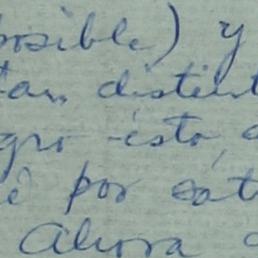 posible) y
tan distint
gro esto,
é por est
Ahora